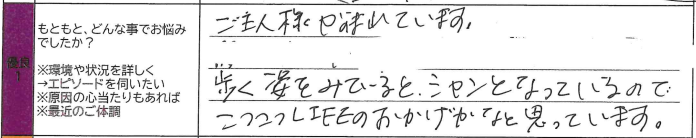 優良
1
もともと、どんな事でお悩み
でしたか？
※環境や状況を詳しく
→エピソードを伺いたい
※原因の心当たりもあれば
※最近のご体調
ご主人様 られています。
歩く姿をみていると、シャンとなっているので
コツコツLIFEのおかげかなと思っています。